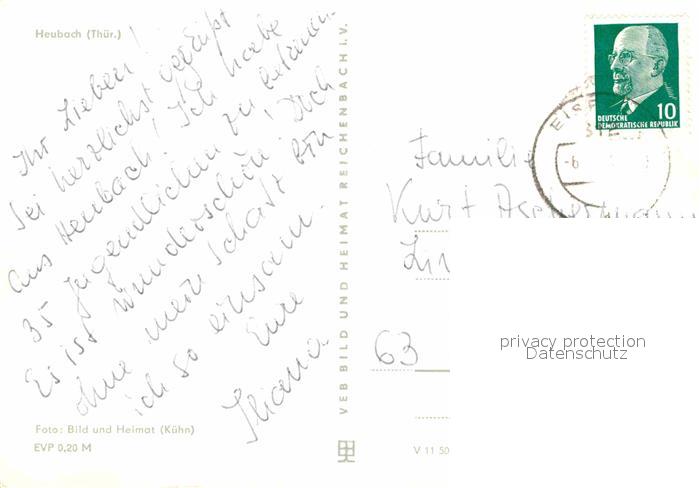 Heubach (Thür.)
Ihr Lieben!
Sei herzlichst gegrüßt
aus Heubach! Ich habe
35 Jugendlichen zu betreuen.
Es ist wunderschön! Doch
ohne mein Schatz bin
ich so einsam.
Eure
Iliana
Foto: Bild und Heimat (Kühn)
EVP 0,20 M
VEB BILD UND HEIMAT REICHENBACH I.V.
V 11 50
DEUTSCHE
DEMOKRATISCHE REPUBLIK
10
Familie
Kurt
63
privacy protection
Datenschutz